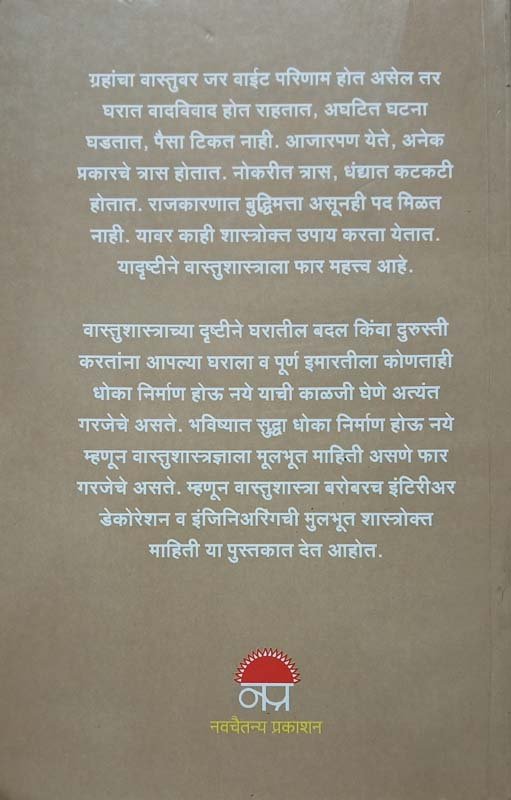 ग्रहांचा वास्तुवर जर वाईट परिणाम होत असेल तर
घरात वादविवाद होत राहतात, अघटित घटना
घडतात, पैसा टिकत नाही. आजारपण येते, अनेक
प्रकारचे त्रास होतात. नोकरीत त्रास, धंद्यात कटकटी
होतात. राजकारणात बुद्धिमत्ता असूनही पद मिळत
नाही. यावर काही शास्त्रोक्त उपाय करता येतात.
यादृष्टीने वास्तुशास्त्राला फार महत्त्व आहे.
वास्तुशास्त्राच्या दृष्टीने घरातील बदल किंवा दुरुस्ती
करतांना आपल्या घराला व पूर्ण इमारतीला कोणताही
धोका निर्माण होऊ नये याची काळजी घेणे अत्यंत
गरजेचे असते. भविष्यात सुद्धा धोका निर्माण होऊ नये
म्हणून वास्तुशास्त्रज्ञाला मूलभूत माहिती असणे फार
गरजेचे असते. म्हणून वास्तुशास्त्रा बरोबरच इंटिरीअर
डेकोरेशन व इंजिनिअरिंगची मुलभूत शास्त्रोक्त
माहिती या पुस्तकात देत आहोत.
नप्र
नवचैतन्य प्रकाशन